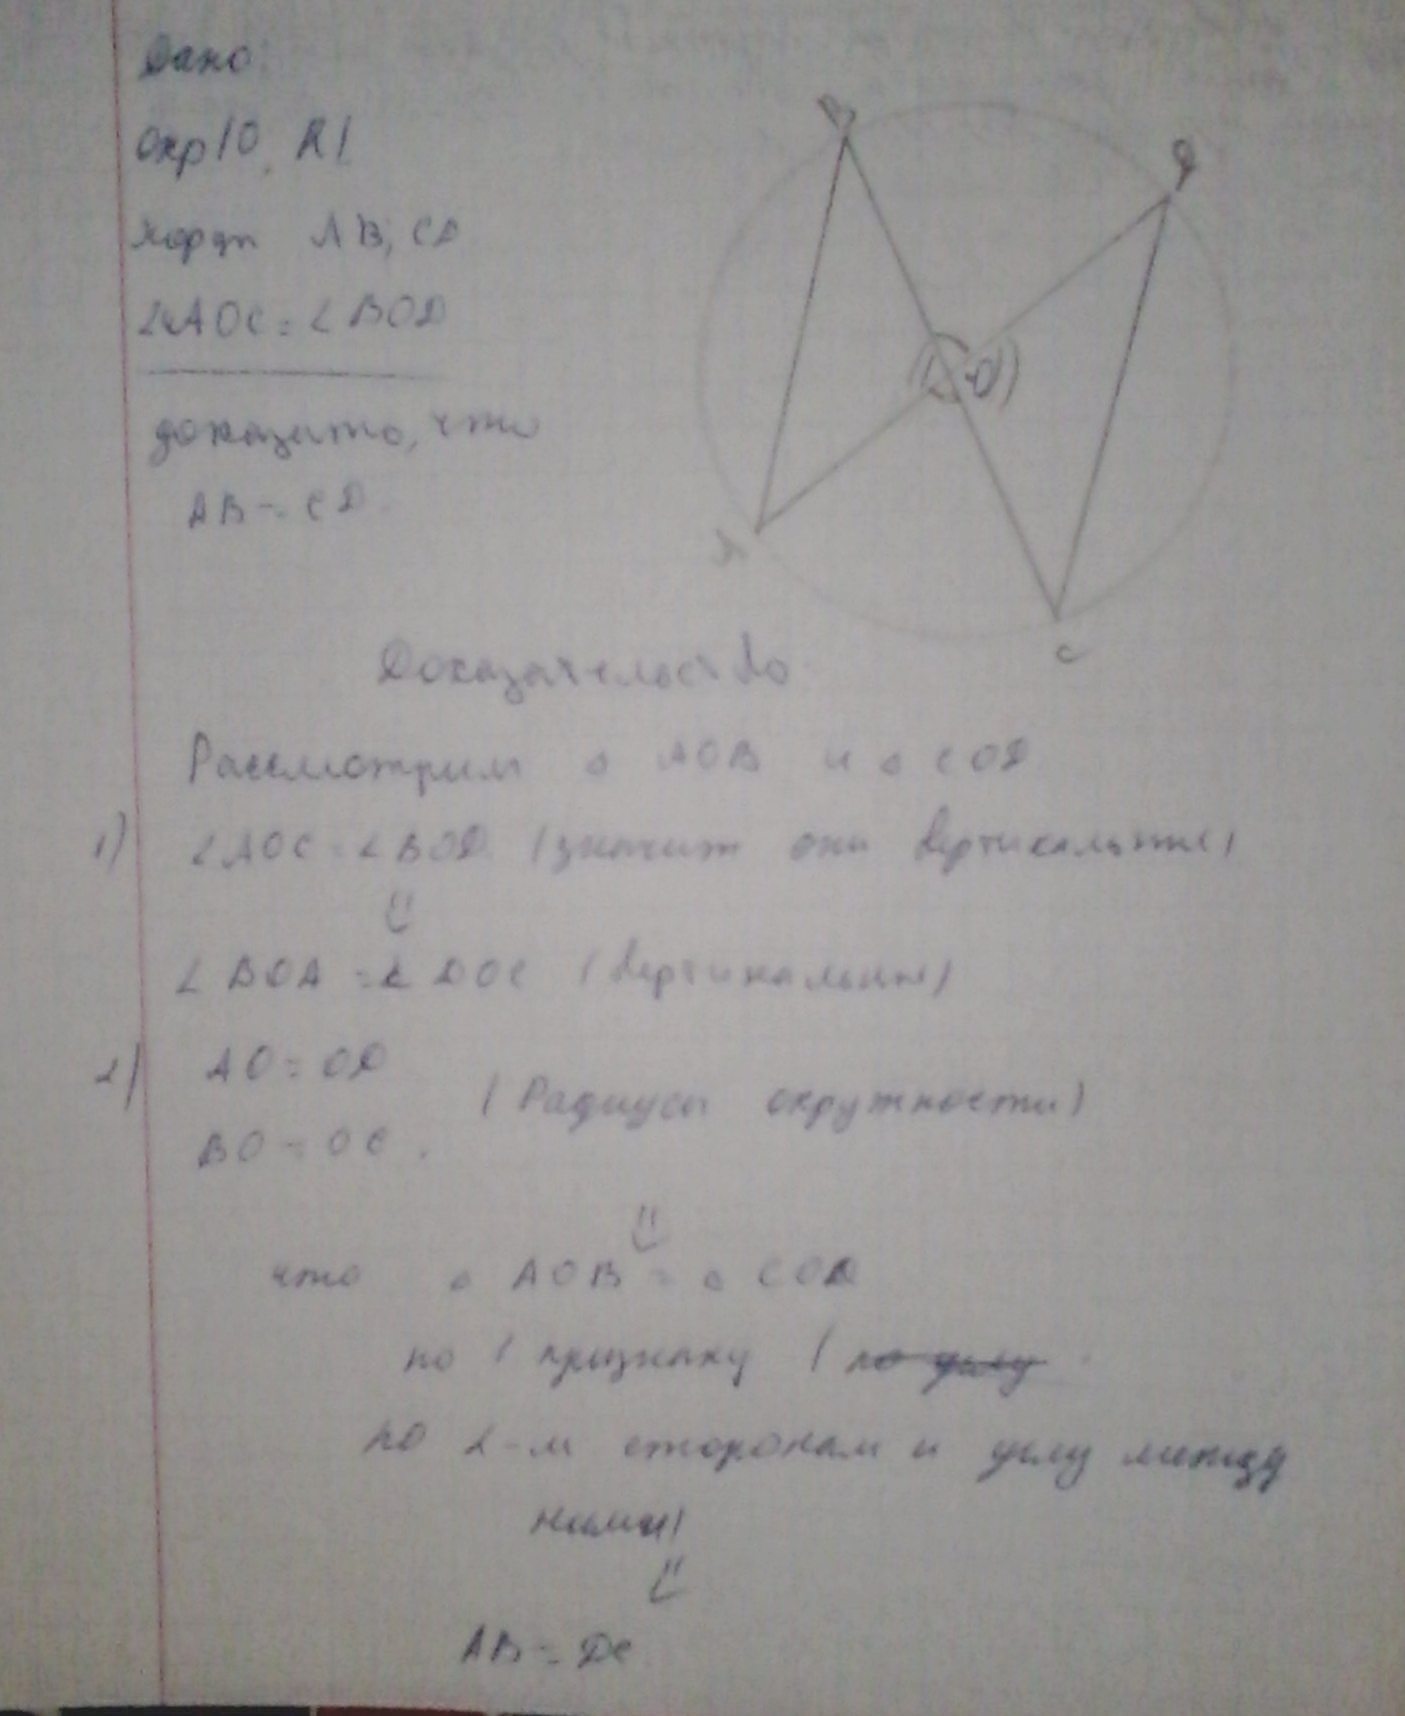 Дано:
Окр(О, R)
хорды AB, CD
∠AOC = ∠BOD
доказать, что
AB = CD.
B
D
O
A
C
Доказательство
Рассмотрим △ AOB и △ COD
1) ∠AOC = ∠BOD (значит они вертикальные)
⇓
∠BOA = ∠DOC (вертикальные)
2) AO = OD
BO = OC.
(Радиусы окружности)
⇓
что △ AOB = △ COD
по 1 признаку (по углу
по 2-м сторонам и углу между
ними)
⇓
AB = DC